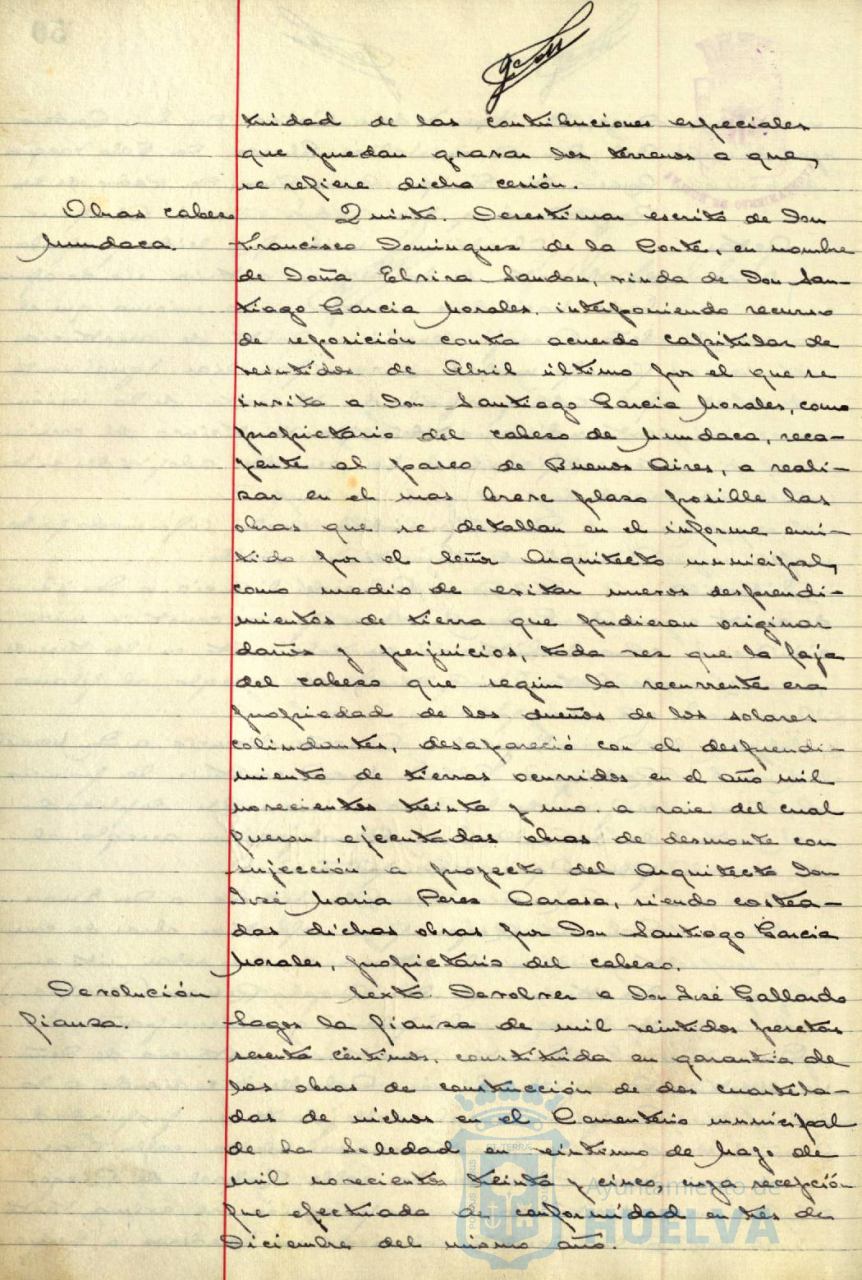 tuidad de las contribuciones especiales
que puedan gravar los terrenos a que
se refiere dicha cesión.
Obras cabezo
Mundaca.
Quinto. Desestimar escrito de Don
Francisco Dominguez de la Corte, en nombre
de Doña Elvira Sandon, viuda de Don San-
tiago Garcia Morales, interponiendo recurso
de reposición contra acuerdo capitular de
veintidos de Abril último por el que se
invita a Don Santiago Garcia Morales, como
propietario del cabezo de Mundaca, reca-
yente al paseo de Buenos Aires, a reali-
zar en el mas breve plazo posible las
obras que se detallan en el informe emi-
tido por el Señor Arquitecto municipal,
como medio de evitar nuevos desprendi-
mientos de tierra que pudieran originar
daños y perjuicios, toda vez que la faja
del cabezo que según la recurrente era
propiedad de los dueños de los solares
colindantes, desapareció con el desprendi-
miento de tierras ocurridos en el año mil
novecientos treinta y uno a raiz del cual
fueron ejecutadas obras de desmonte con
sujección a proyecto del Arquitecto Don
José Maria Perez Carasa, siendo costea-
das dichas obras por Don Santiago Garcia
Morales, propietario del cabezo.
Devolución
fianza.
Sexto. Devolver a Don José Gallardo
Lagos la fianza de mil veintidos pesetas
sesenta céntimos, constituida en garantia de
las obras de construcción de dos cuartela-
das de nichos en el Cementerio municipal
de la Soledad en veintiuno de Mayo de
mil novecientos treinta y cinco, cuya recepción
fue efectuada de conformidad en tres de
Diciembre del mismo año.
Ayuntamiento de
HUELVA